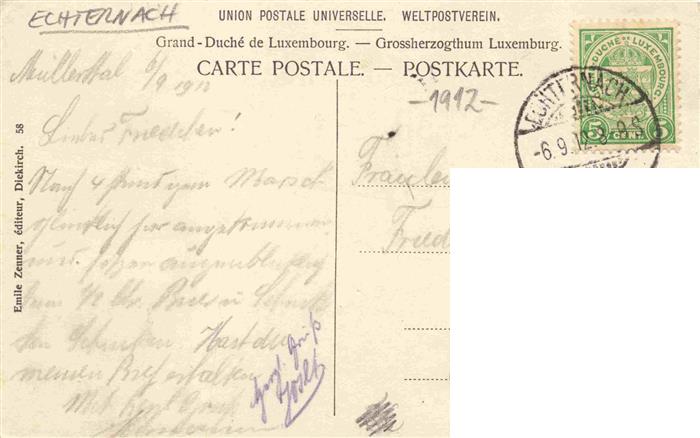 ECHTERNACH
UNION POSTALE UNIVERSELLE. WELTPOSTVEREIN.
Grand-Duché de Luxembourg. — Grossherzogthum Luxemburg.
CARTE POSTALE. — POSTKARTE.
-1912-
GD DUCHÉ DE LUXEMBOURG.
5 CENT. 5
ECHTERNACH
-6.9.12.
Emile Zenner, éditeur, Diekirch. 58
Müllerthal 6/9 1912
Liebes Friedchen!
Nach 4 stündigem Marsch
glücklich hier angekommen
und sitzen augenblicklich
beim
den Schinken. Hast du
meinen Brief erhalten
Mit herzl. Gruß
Herzl. Gruß
Fräulein